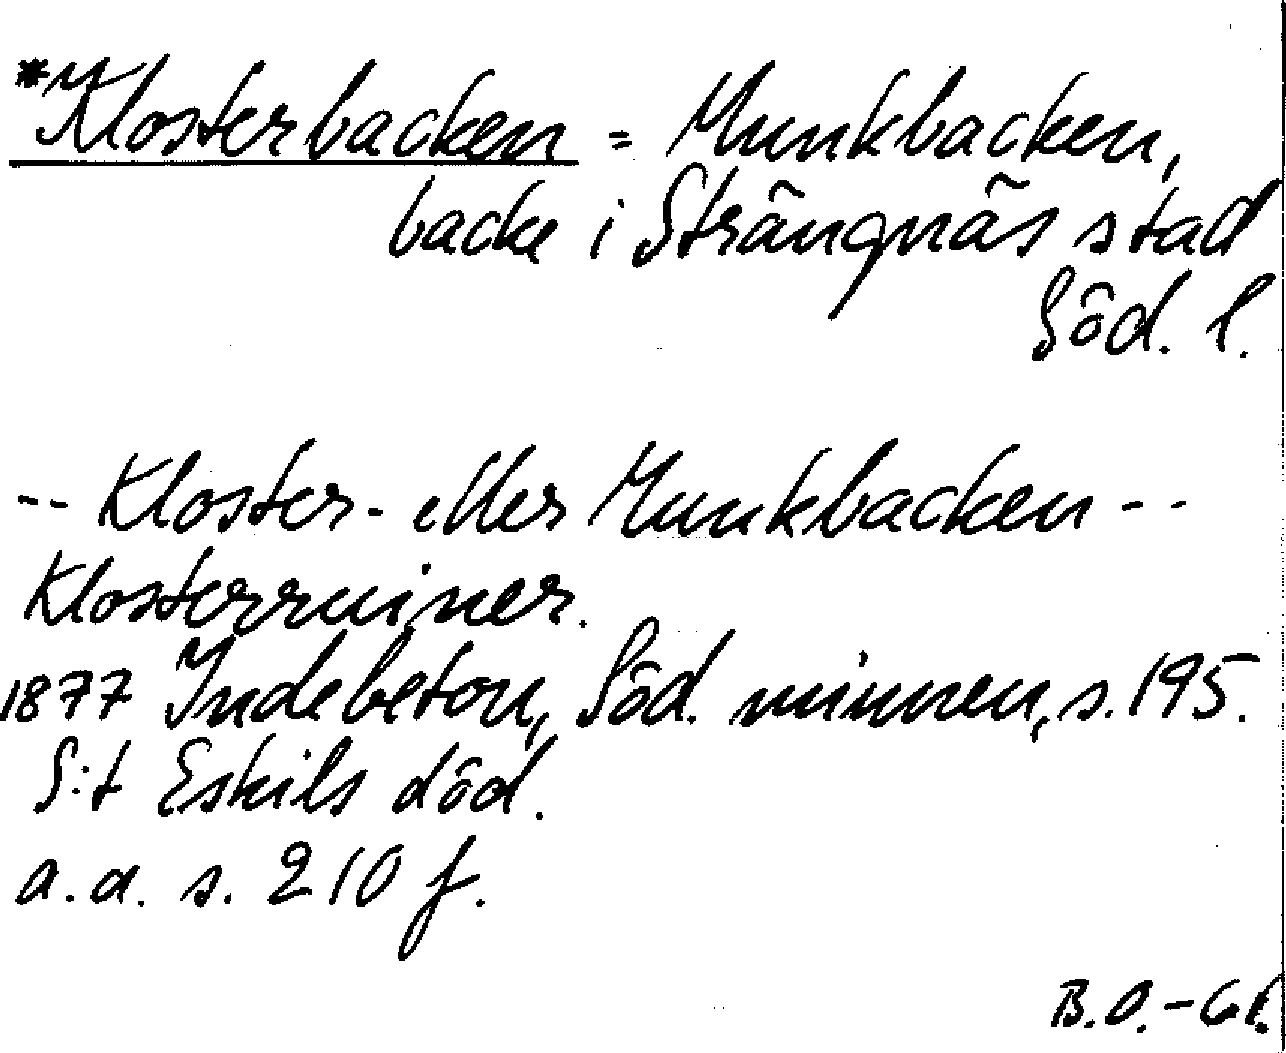 *Klosterbacken = Munkbacken,
backe i Strängnäs stad
Söd. l.
-- Kloster- eller Munkbacken --
Klosterruiner.
1877 Indebetou, Söd. minnen, s. 195.
S:t Eskils död.
a.a. s. 210 f.
B.O.-61.